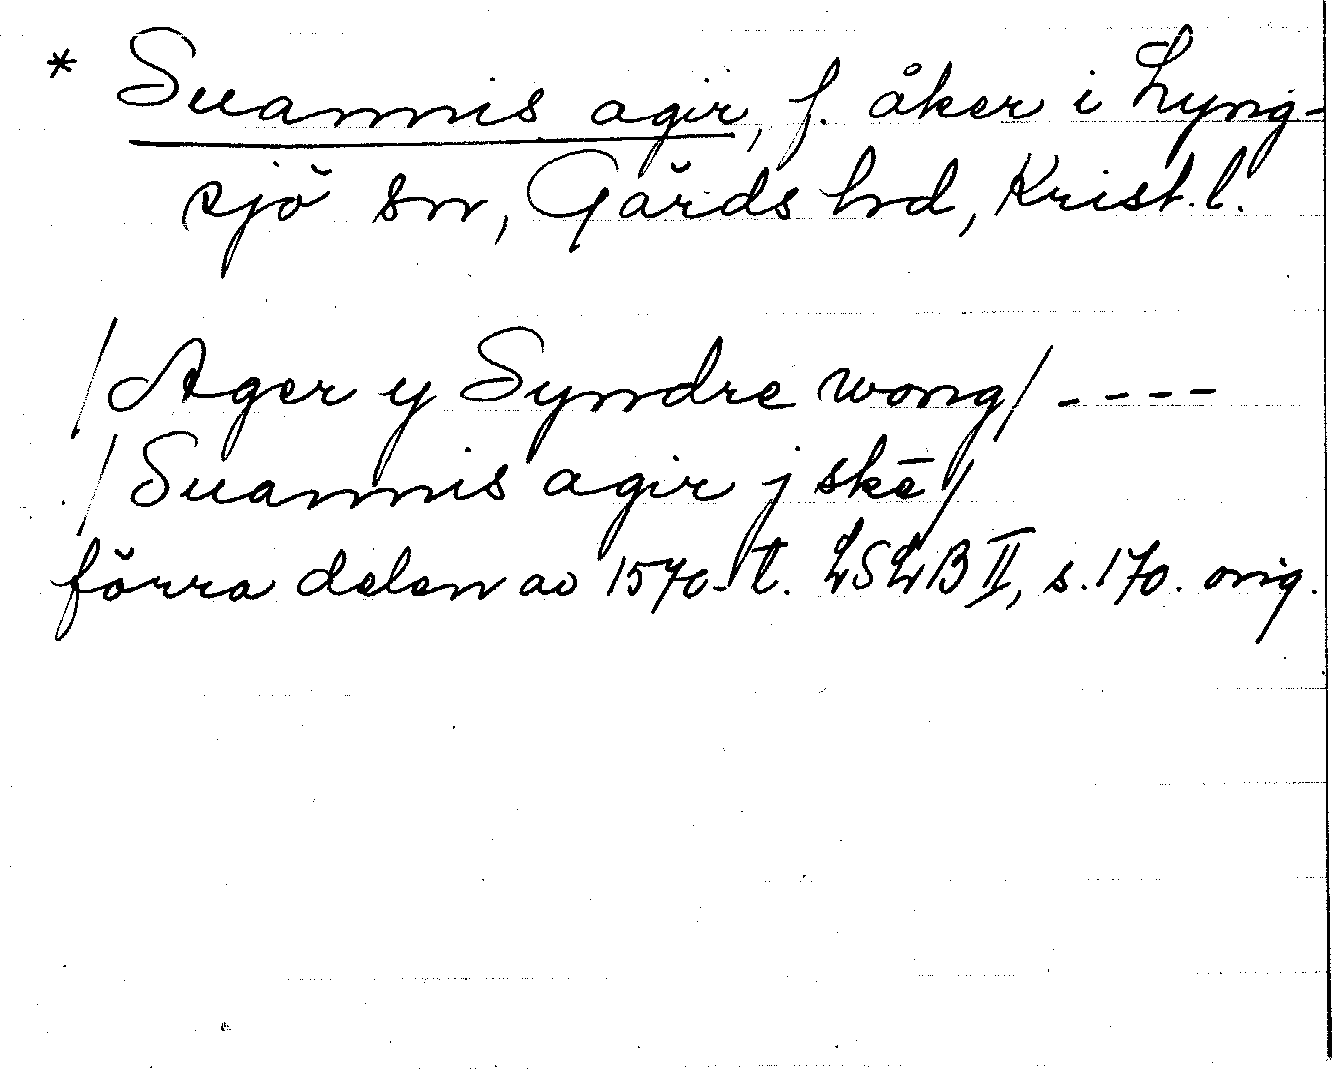 * Suannis agir, f. åker i Lyng-
sjö sn, Gärds hrd, Krist. l.
/Ager y Syndre wong/ ----
/Suannis agir j skē/
förra delen av 1570-t. LSLB II, s. 170. orig.